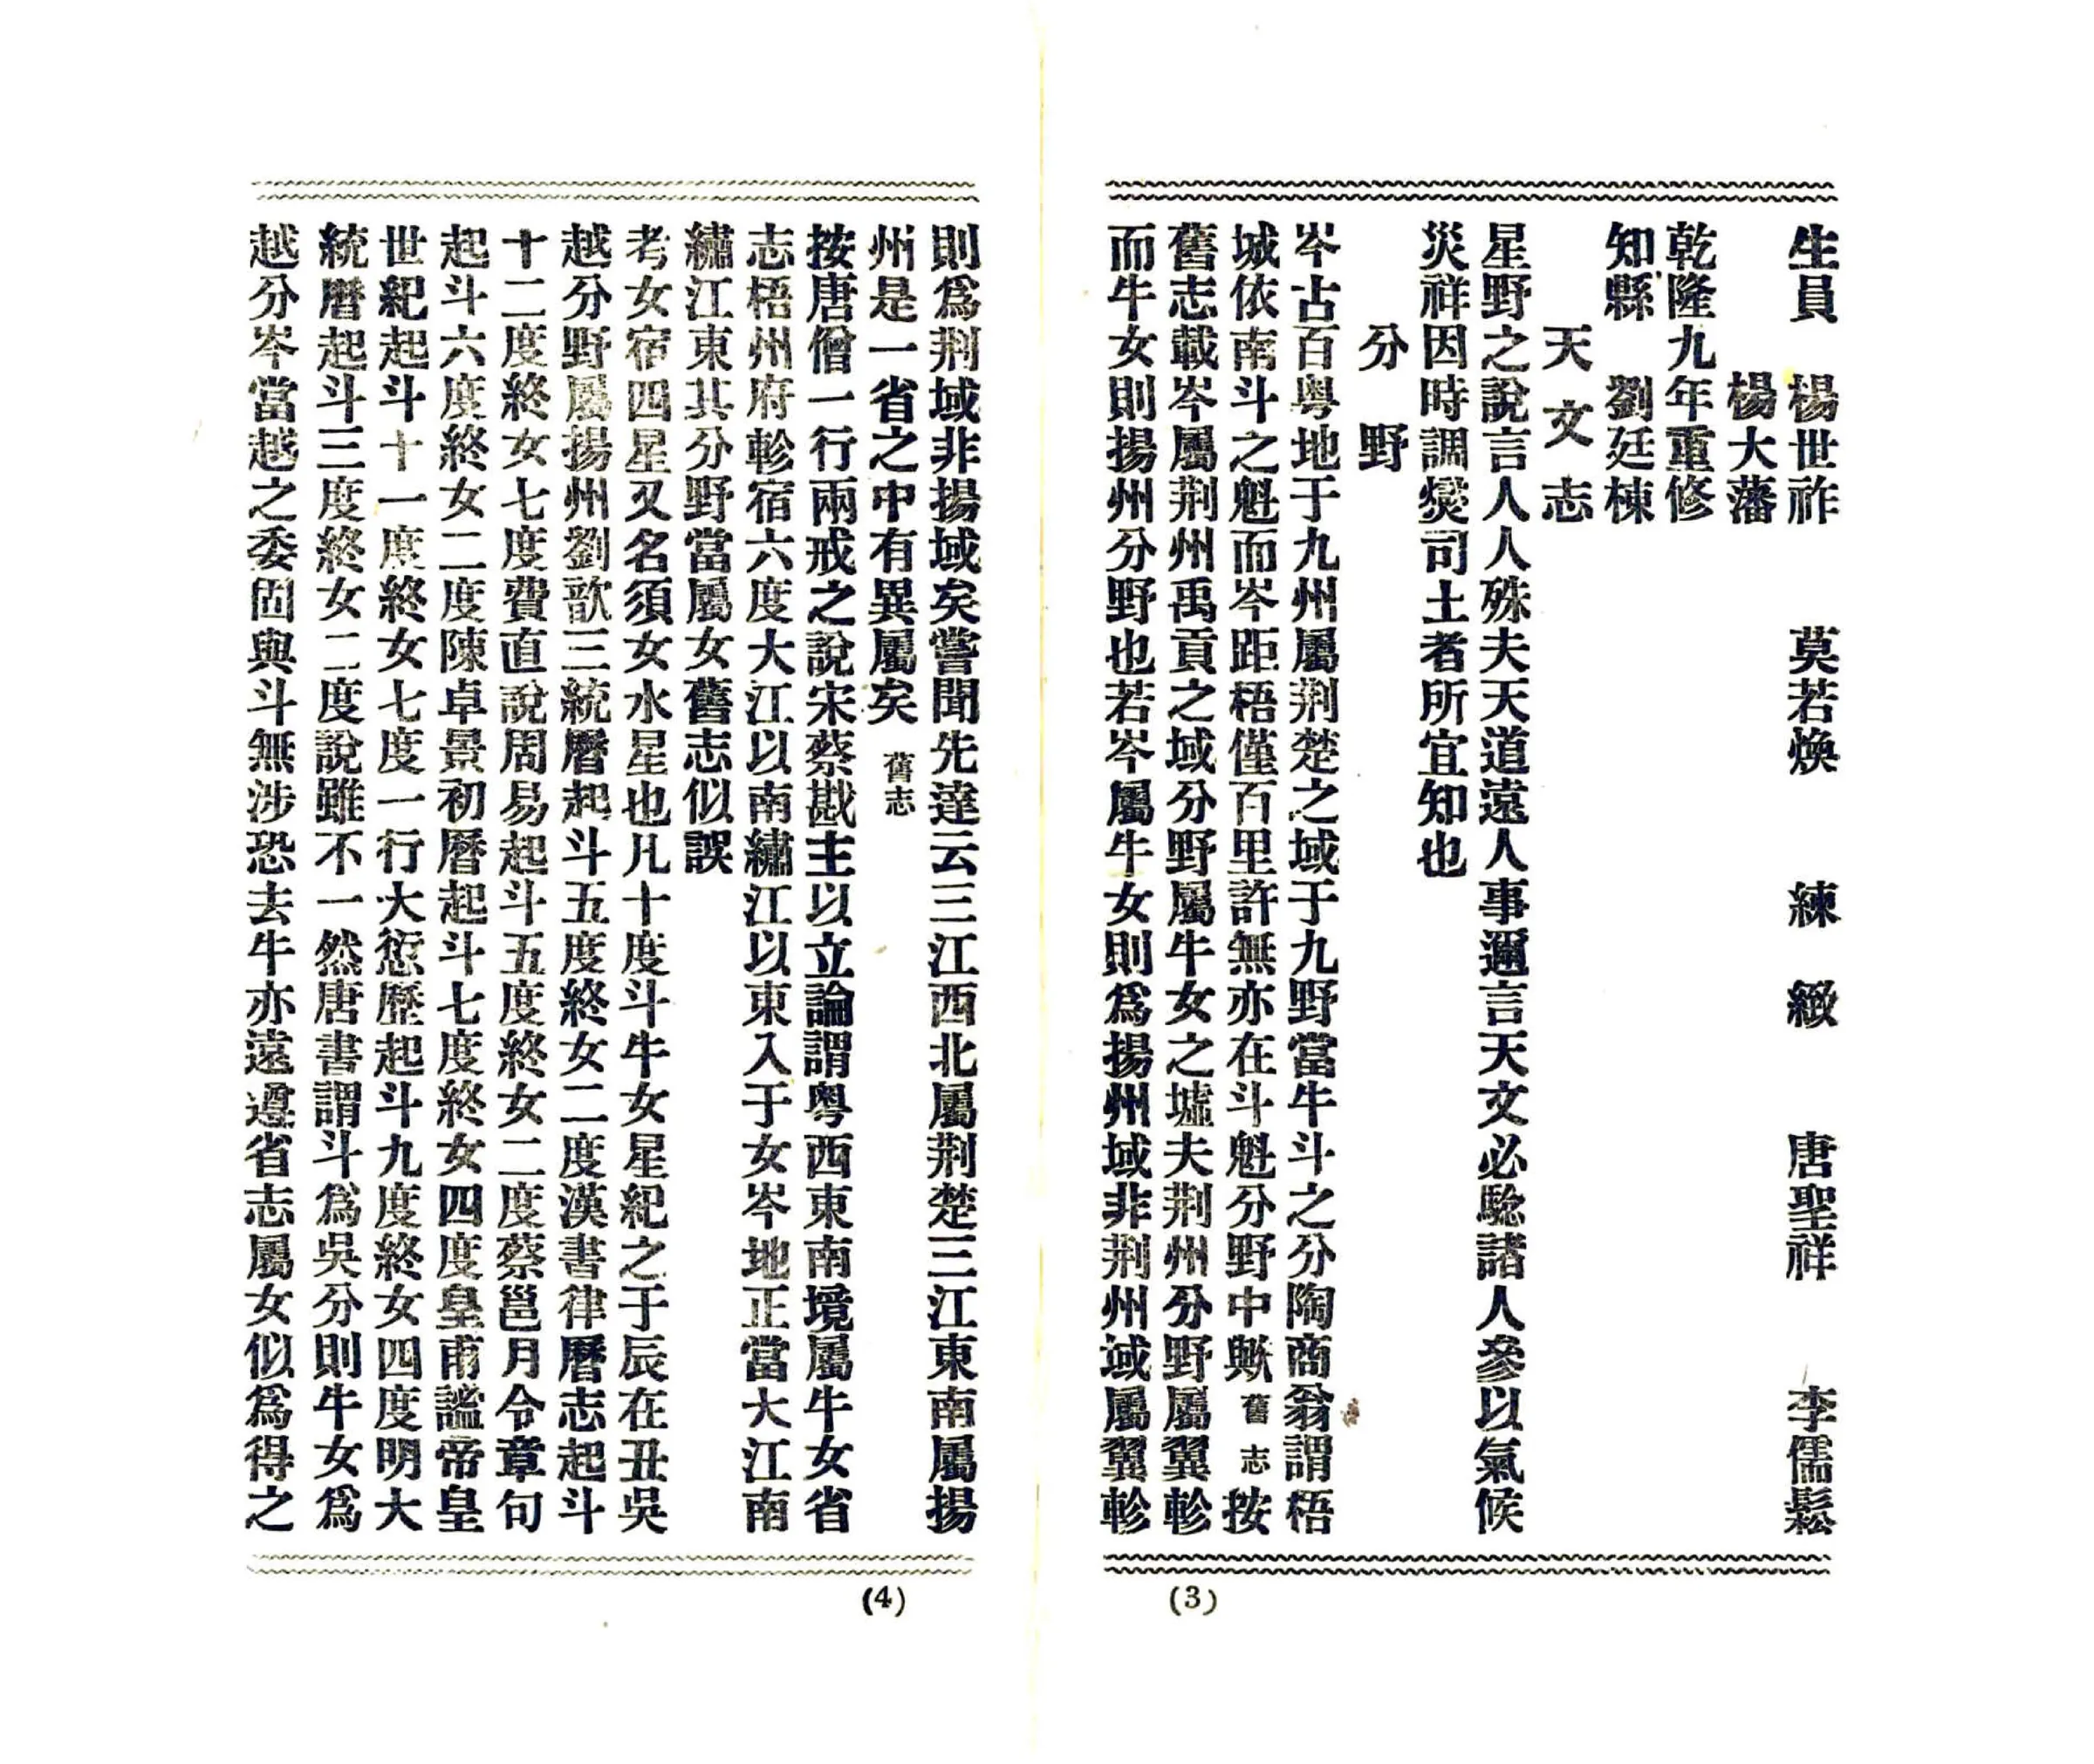 生員　楊世祚　莫若煥　練　緻　唐聖祥　李儒鬆
楊大藩
乾隆九年重修
知縣　劉廷棟
天文志
星野之說言人人殊夫天道遠人事邇言天文必驗諸人參以氣候
災祥因時調燮司土者所宜知也
分　野
岑占百粤地于九州屬荆楚之域于九野當牛斗之分陶商翁謂梧
城依南斗之魁而岑距梧僅百里許無亦在斗魁分野中歟舊志按
舊志載岑屬荆州禹貢之域分野屬牛女之墟夫荆州分野屬翼軫
而牛女則揚州分野也若岑屬牛女則爲揚州域非荆州域屬翼軫
(3)
則爲荆域非揚域矣嘗聞先達云三江西北屬荆楚三江東南屬揚
州是一省之中有異屬矣舊志
按唐僧一行兩戒之說宋蔡戡主以立論謂粤西東南境屬牛女省
志梧州府軫宿六度大江以南繡江以東入于女岑地正當大江南
繡江東其分野當屬女舊志似誤
考女宿四星又名須女水星也凡十度斗牛女星紀之于辰在丑吳
越分野屬揚州劉歆三統曆起斗五度終女二度漢書律曆志起斗
十二度終女七度費直說周易起斗五度終女二度蔡邕月令章句
起斗六度終女二度陳卓景初曆起斗七度終女四度皇甫謐帝皇
世紀起斗十一度終女七度一行大愆歷起斗九度終女四度明大
統曆起斗三度終女二度說雖不一然唐書謂斗爲吳分則牛女爲
越分岑當越之委固與斗無涉恐去牛亦遠遵省志屬女似爲得之
(4)